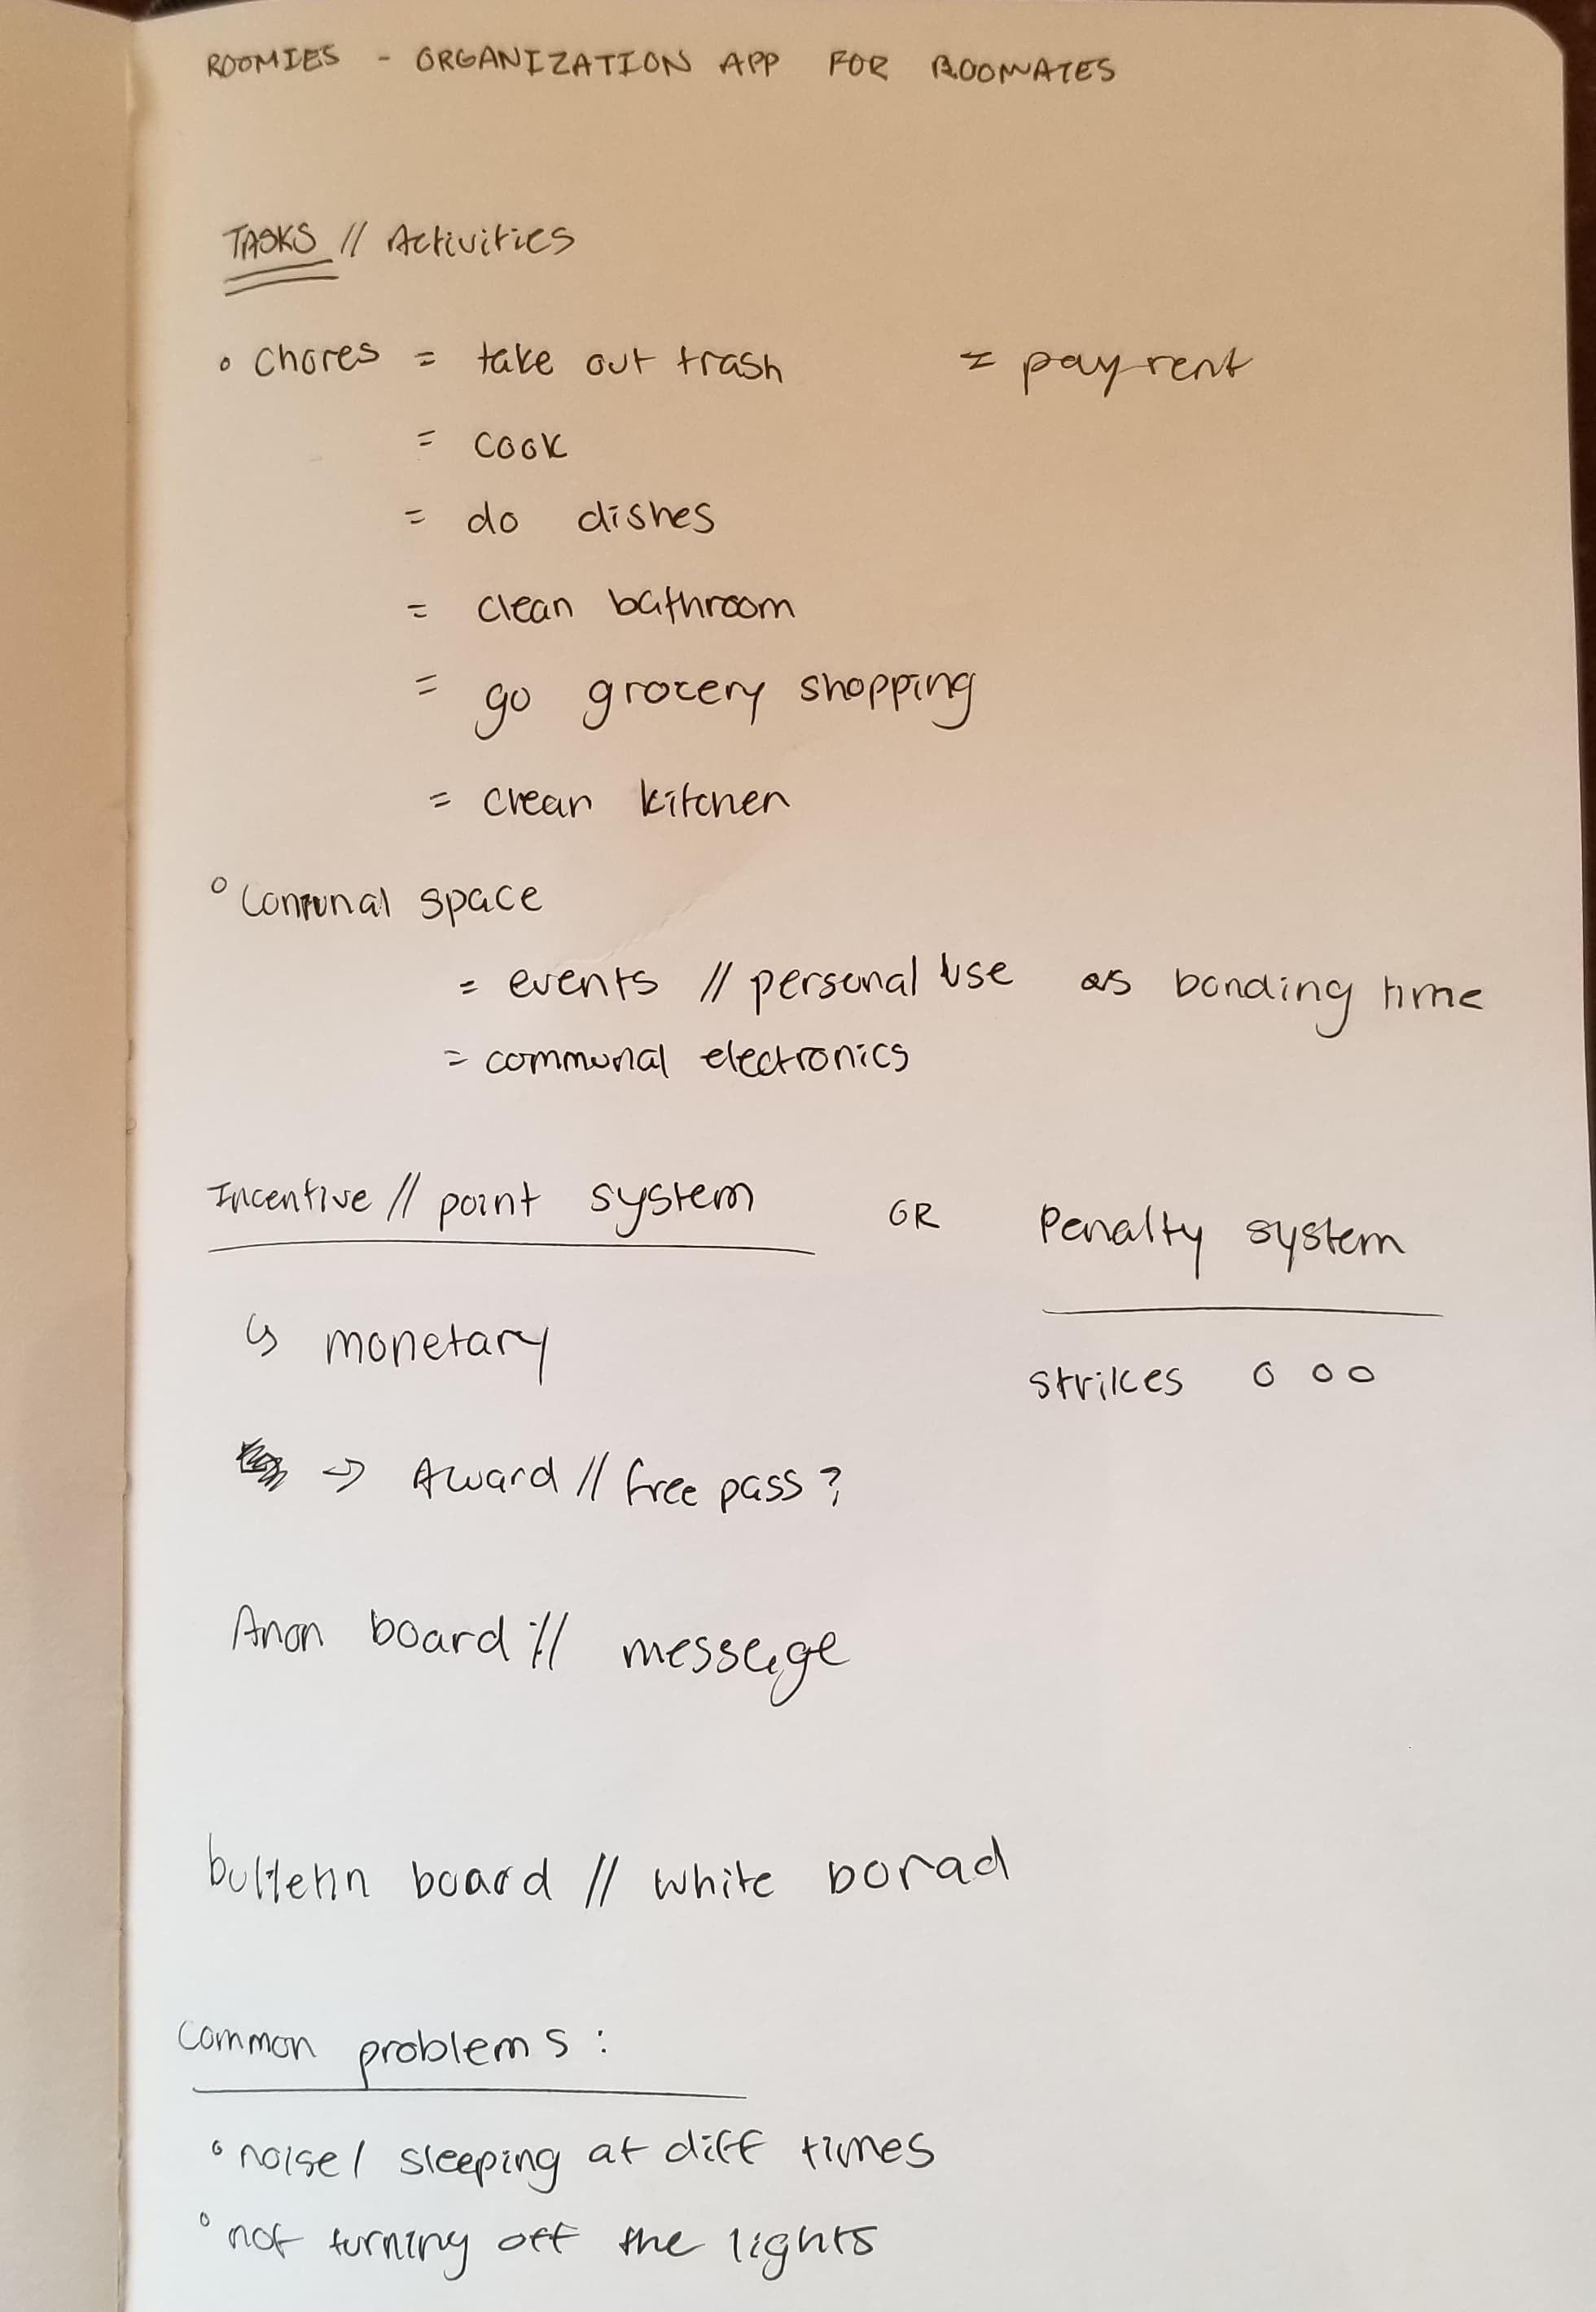 ROOMIES - ORGANIZATION APP FOR ROOMATES
TASKS // Activities
◦ Chores = take out trash = pay rent
= cook
= do dishes
= clean bathroom
= go grocery shopping
= clean kitchen
◦ Communal space
= events // personal use as bonding time
= communal electronics
Incentive // point system OR Penalty system
↳ monetary strikes o o o
→ Award // free pass ?
Anon board // message
bulletin board // white borad
Common problems :
◦ noise / sleeping at diff times
◦ not turning off the lights